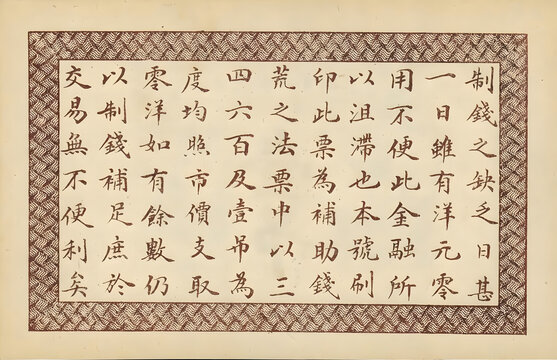 制錢之缺乏日甚
一日雖有洋元零
用不便此金融所
以沮滯也本號刷
印此票為補助錢
荒之法票中以三
四六百及壹吊為
度均照市價支取
零洋如有餘數仍
以制錢補足庶於
交易無不便利矣